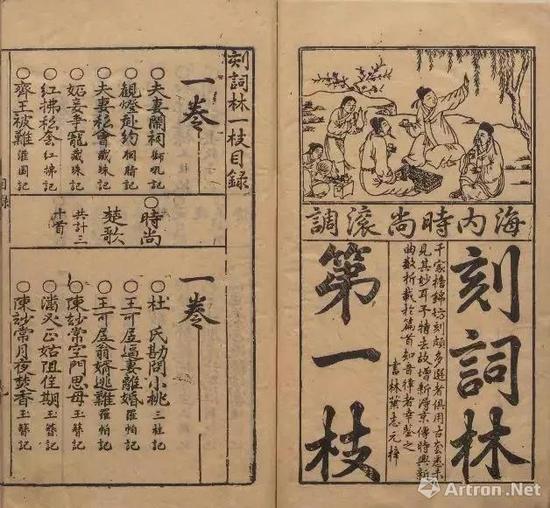 海內時尚滾調
刻詞林
千家摘錦坊刻頗多選者俱用古套悉未
見其妙耳予特去故增新得京傳時興新
曲數折載於篇首知音律者幸鑒之
書林葉志元梓
第一枝
刻詞林一枝目錄
一卷
○夫妻鬧祠 獅吼記
○觀燈赴約 胭脂記
○夫妻私會 藏珠記
○妬妾爭寵 藏珠記
○紅拂私奔 紅拂記
○齊王被難 灌園記
○時尚
楚歌
共計三
十首
一卷
○杜氏勘問小桃 三社記
○王可居逼妻離婚 羅帕記
○王可居翁婿逃難 羅帕記
○陳妙常空門思母 玉簪記
○潘必正姑阻佳期 玉簪記
○陳妙常月夜焚香 玉簪記
目錄
Artron.Net